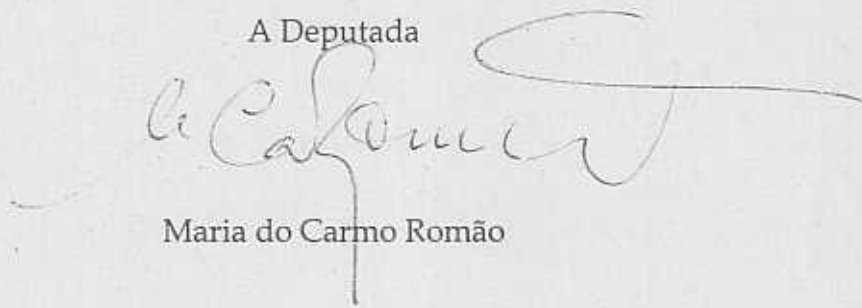 A Deputada
Maria do Carmo Romão